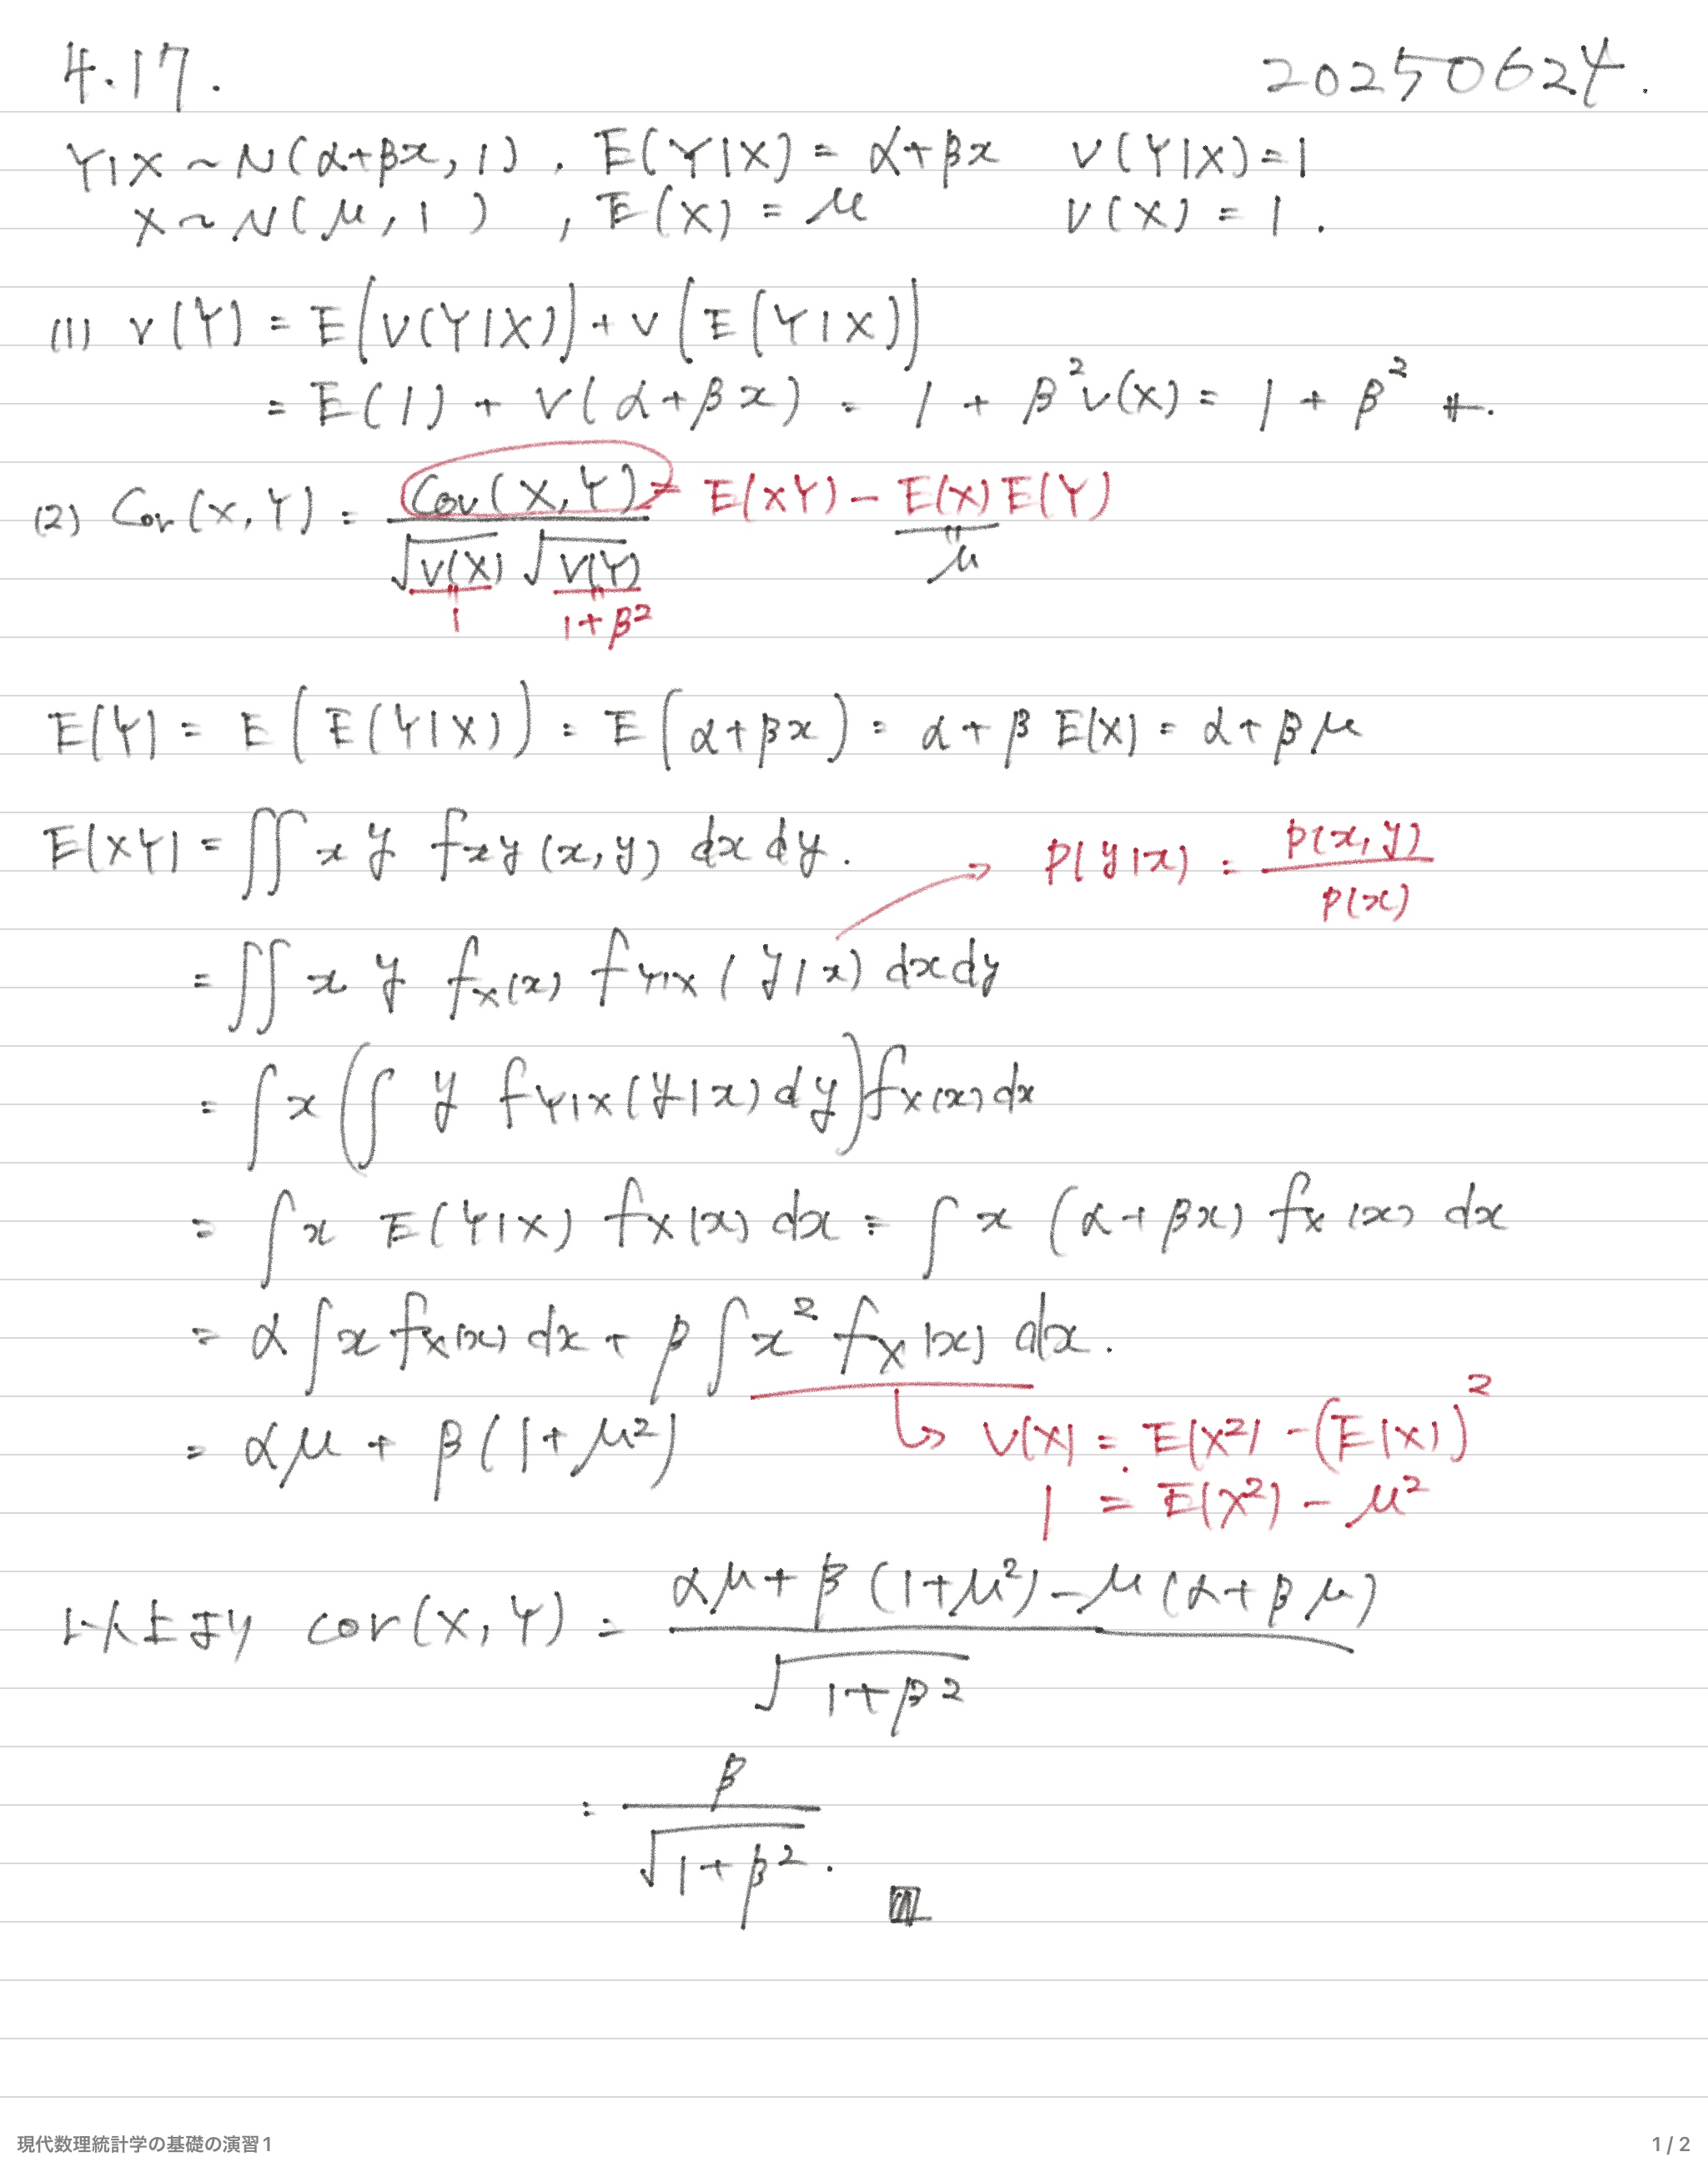 4.17.
20250624.
Y|X ~ N(α+βx, 1) . E(Y|X) = α+βx V(Y|X)=1
X ~ N(μ, 1) , E(X) = μ V(X) = 1.
(1) V(Y) = E(V(Y|X)) + V(E(Y|X))
= E(1) + V(α+βx) = 1 + β²V(X) = 1 + β² #.
(2) Cor(X, Y) = Cov(X, Y) / √V(X) √V(Y) = E(XY) - E(X)E(Y)
μ
1 1+β²
E(Y) = E(E(Y|X)) = E(α+βx) = α+β E(X) = α+βμ
E(XY) = ∬ x y fxy(x, y) dx dy.
p(y|x) = p(x, y) / p(x)
= ∬ x y fX(x) fY|X(y|x) dx dy
= ∫ x (∫ y fY|X(y|x) dy) fX(x) dx
= ∫ x E(Y|X) fX(x) dx = ∫ x (α+βx) fX(x) dx
= α∫x fX(x) dx + β∫x² fX(x) dx.
= αμ + β(1+μ²)
V(X) = E(X²) - (E(X))²
1 = E(X²) - μ²
以上より cor(X, Y) = αμ + β(1+μ²) - μ(α+βμ) / √1+β²
= β / √1+β² .
現代数理統計学の基礎の演習1
1 / 2